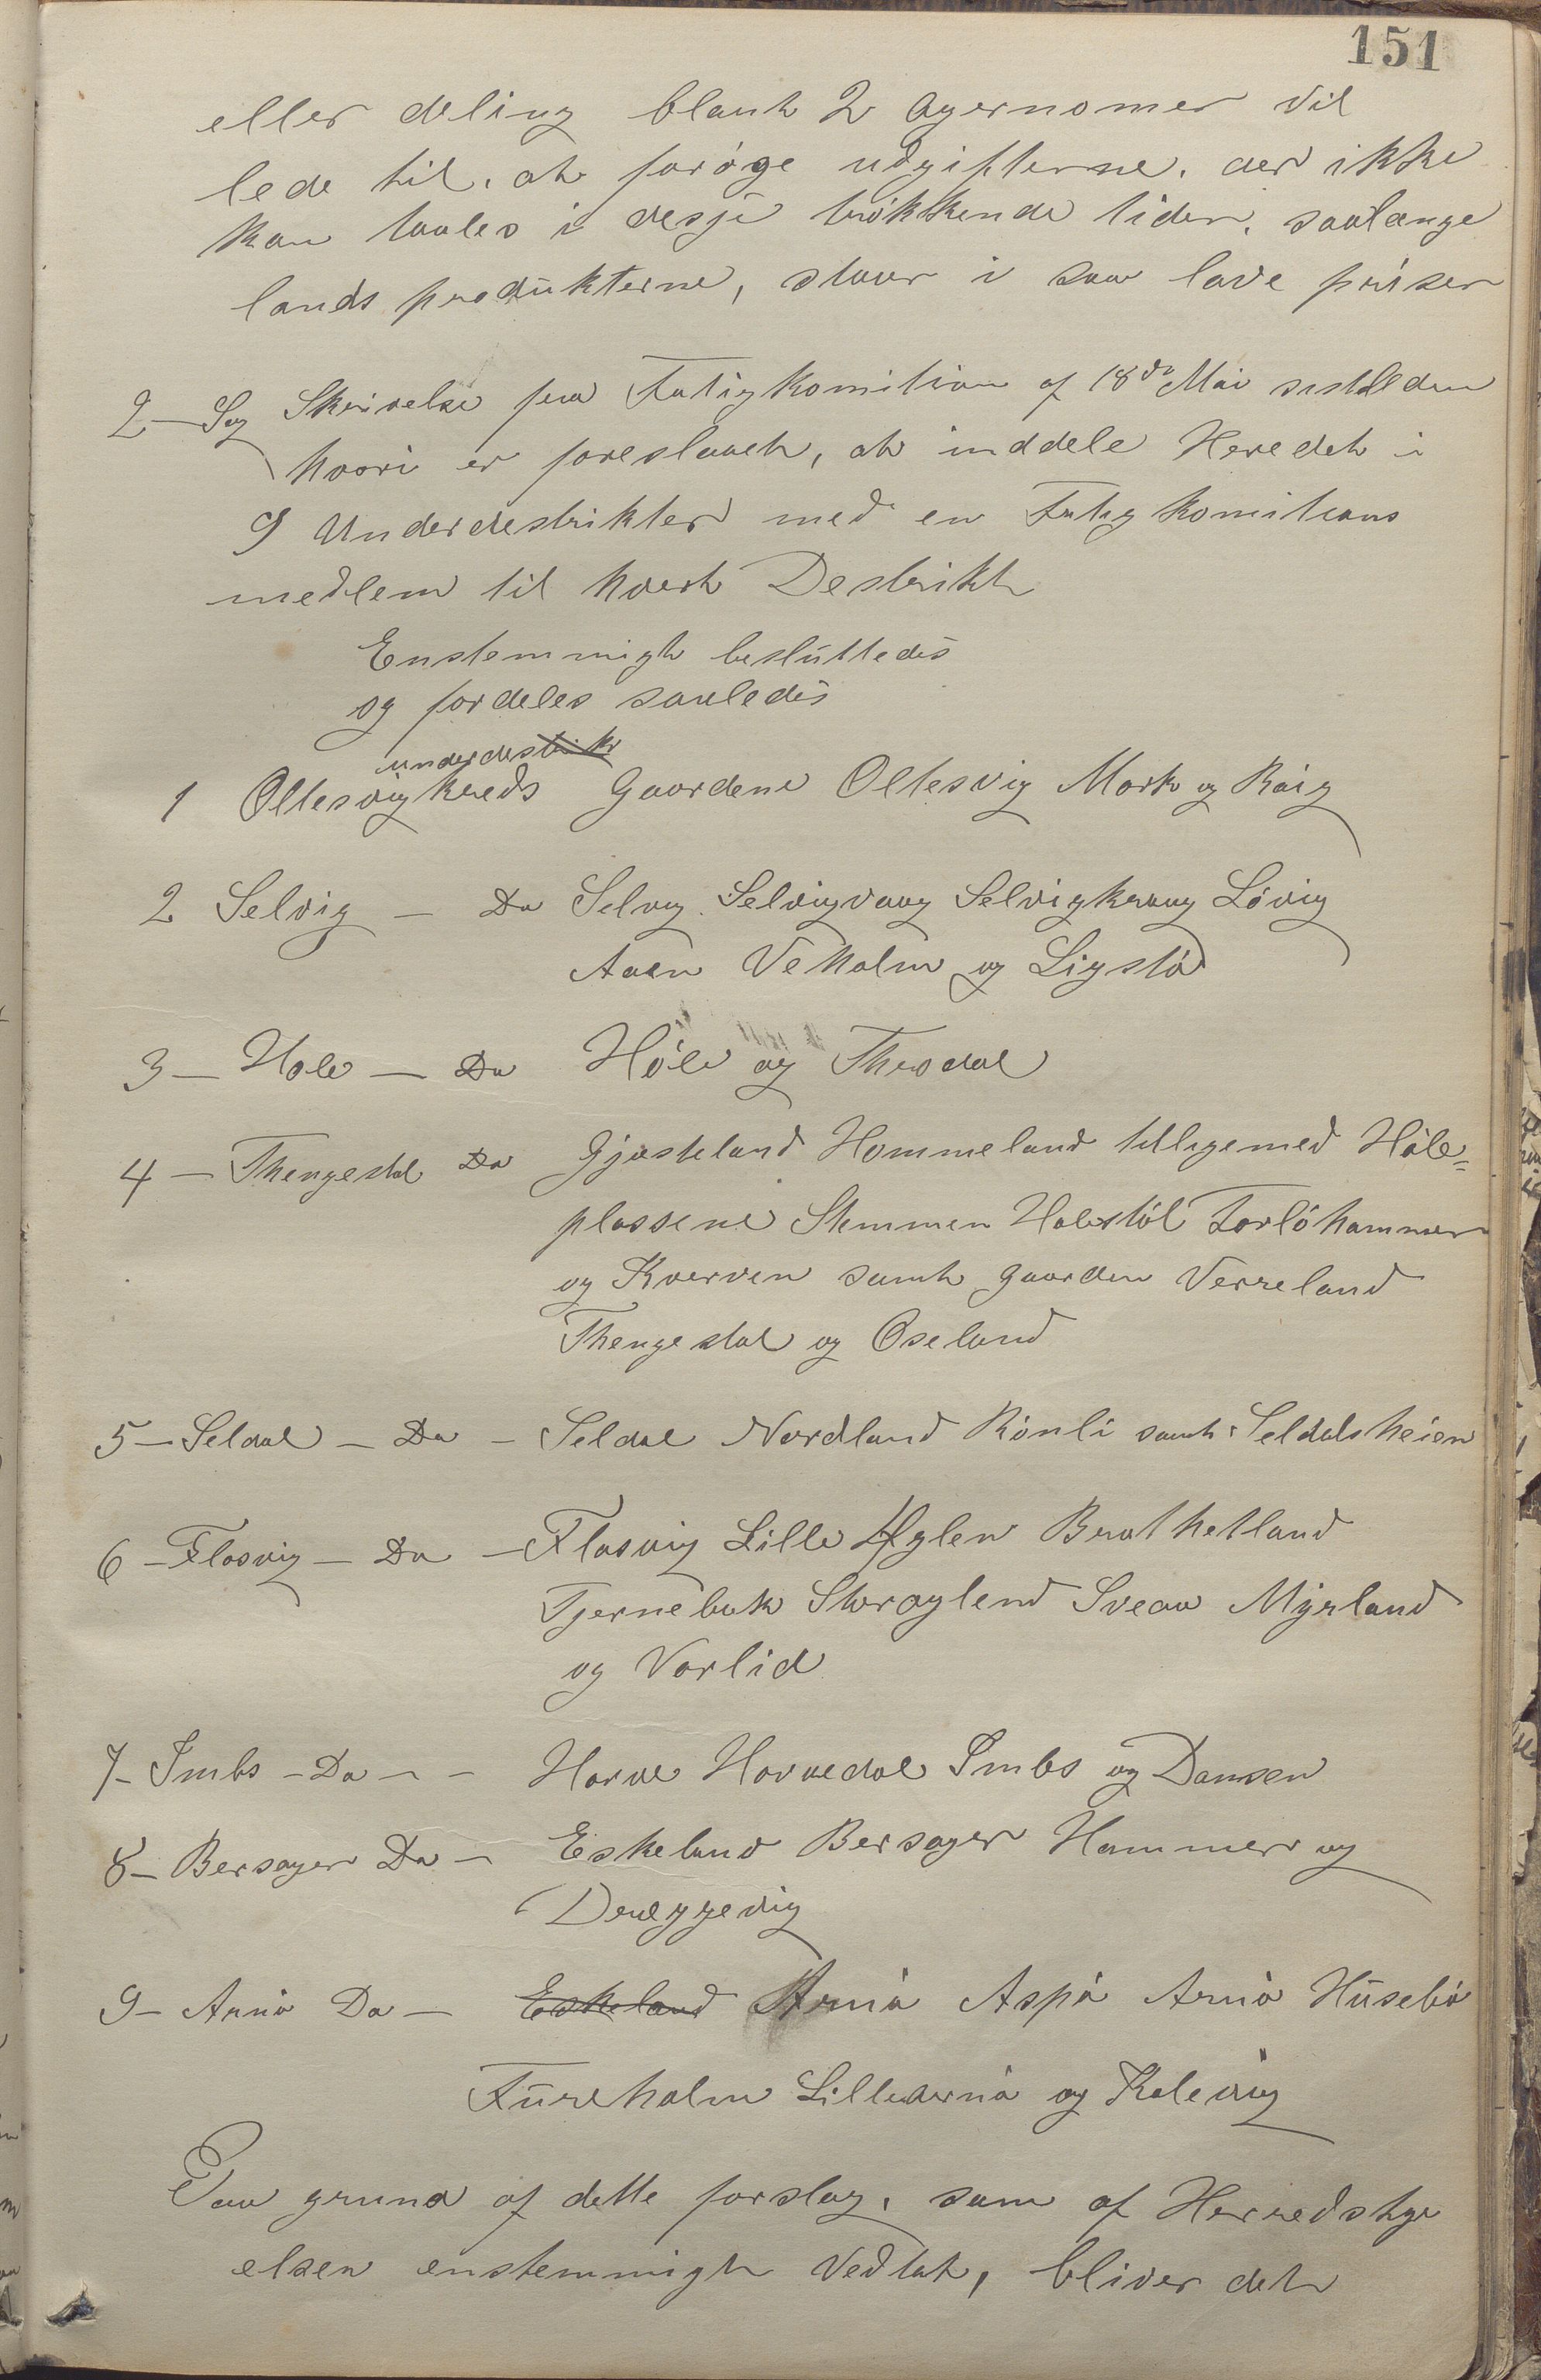 151
eller deling blant 2 Agernomer vil
lede til, at forøge udgifterne, der ikke
kan taales i desse trökkende tider, saalænge
lands produkterne, staar i saa lave priser
2 - Sag Skrivelse fra Fatigkomition af 18de Mai sistleden
hvori er foreslaaet, at inddele Heredet i
9 Underdestrikter med en Fatigkomitions
medlem til hvert Destrikt
Enstemmigt besluttedes
og fordeles saaledes
underdestrikt
1 Oltesvig Kreds Gaardene Oltesvig Mark og Røig
2 Selvig - Do Selvig Selvigvaag Selvigkraag Løvig
Aasen Veholm og Ligstø
3 - Hole - Do Høle og Thesdal
4 - Thengesdal Do Gjesteland Hommeland tilligemed Høle=
plassene Stemmen Holestøl Forløhammer
og Kverven samt gaarden Verreland
Thengesdal og Oseland
5 - Seldal - Do - Seldal Nordland Rönli samt Seldalsheien
6 - Flasvig - Do - Flasvig Lille Aglen Brathetland
Tjernebak Storaglend Sveaa Myrland
og Varlid
7 - Imbs - Do - - Harve Harvedal Imbs og Dansen
8 - Bersager Do - Eskeland Bersager Hammer og
Dreggevig
9 - Arnø Do - Eskeland Arnø Aspø Arnø Husebø
Fureholm Lillearnø og Kalevig
Paa grund af dette forslag, som af Herredsty
elsen enstemmigt Vedtat, bliver det